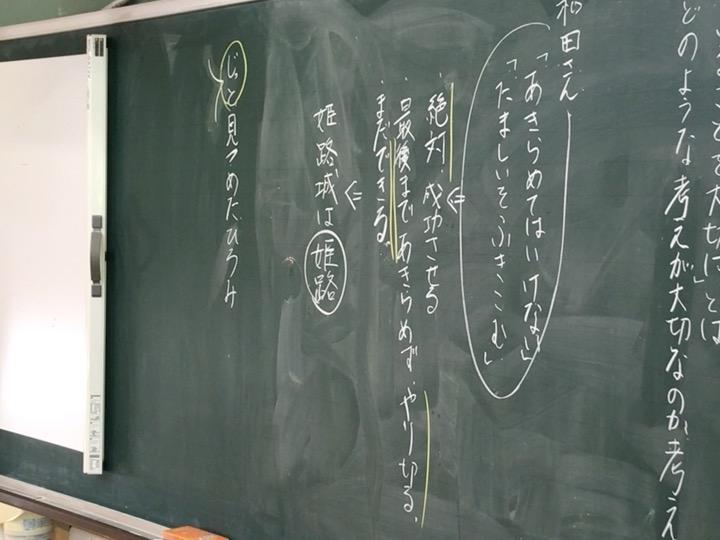 ことを大切に」とは
どのような考えが大切なのか考え
和田さん
「あきらめてはいけない」
「たましいをふきこむ」
・絶対、成功させる
・最後まであきらめず、やり切る。
・まだできる。
姫路城は姫路
じっと見つめたひろみ